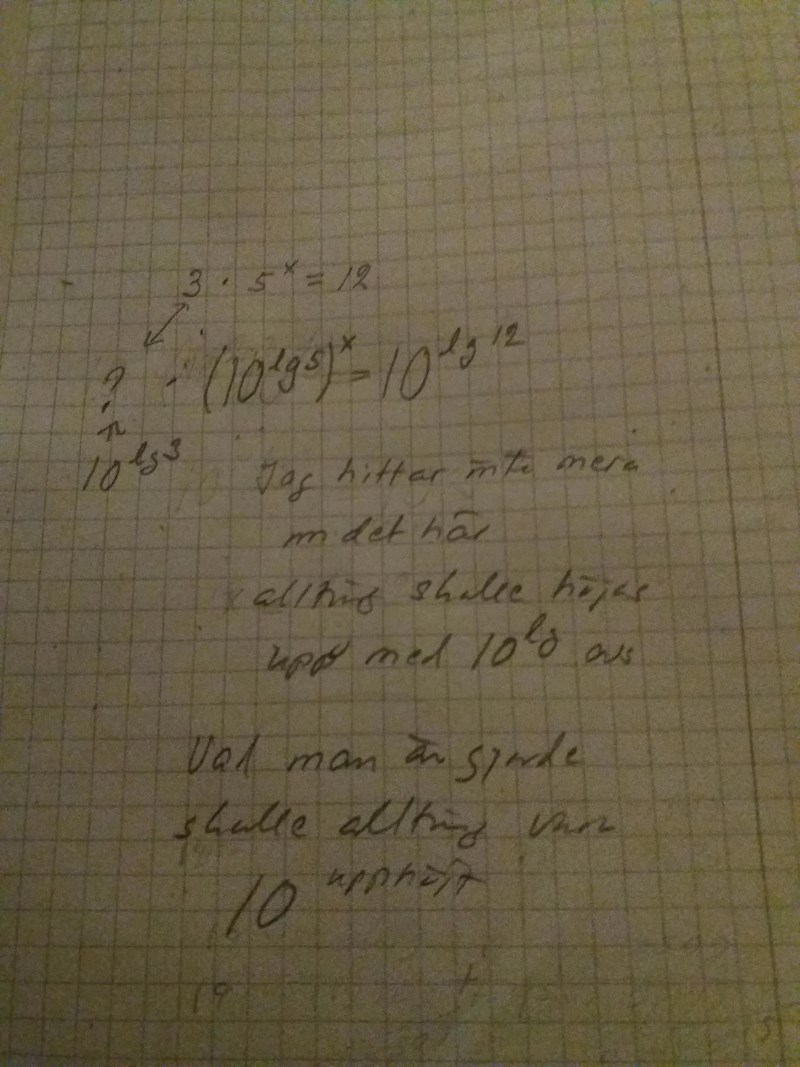 3 · 5^x = 12
? · (10^lg5)^x = 10^lg 12
10^lg3
Jag hittar inte mera
än det här
allting skulle höjas
upp med 10^lg och
Vad man än gjorde
skulle allting vara
10 upphöjt